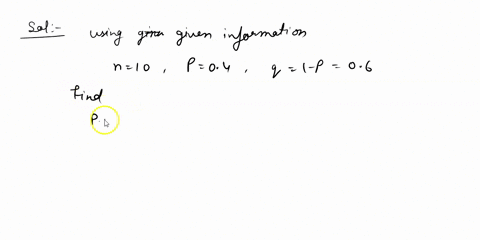 Sol:- using given given information
n=10 , P=0.4 , q=1-P=0.6
Find
P.